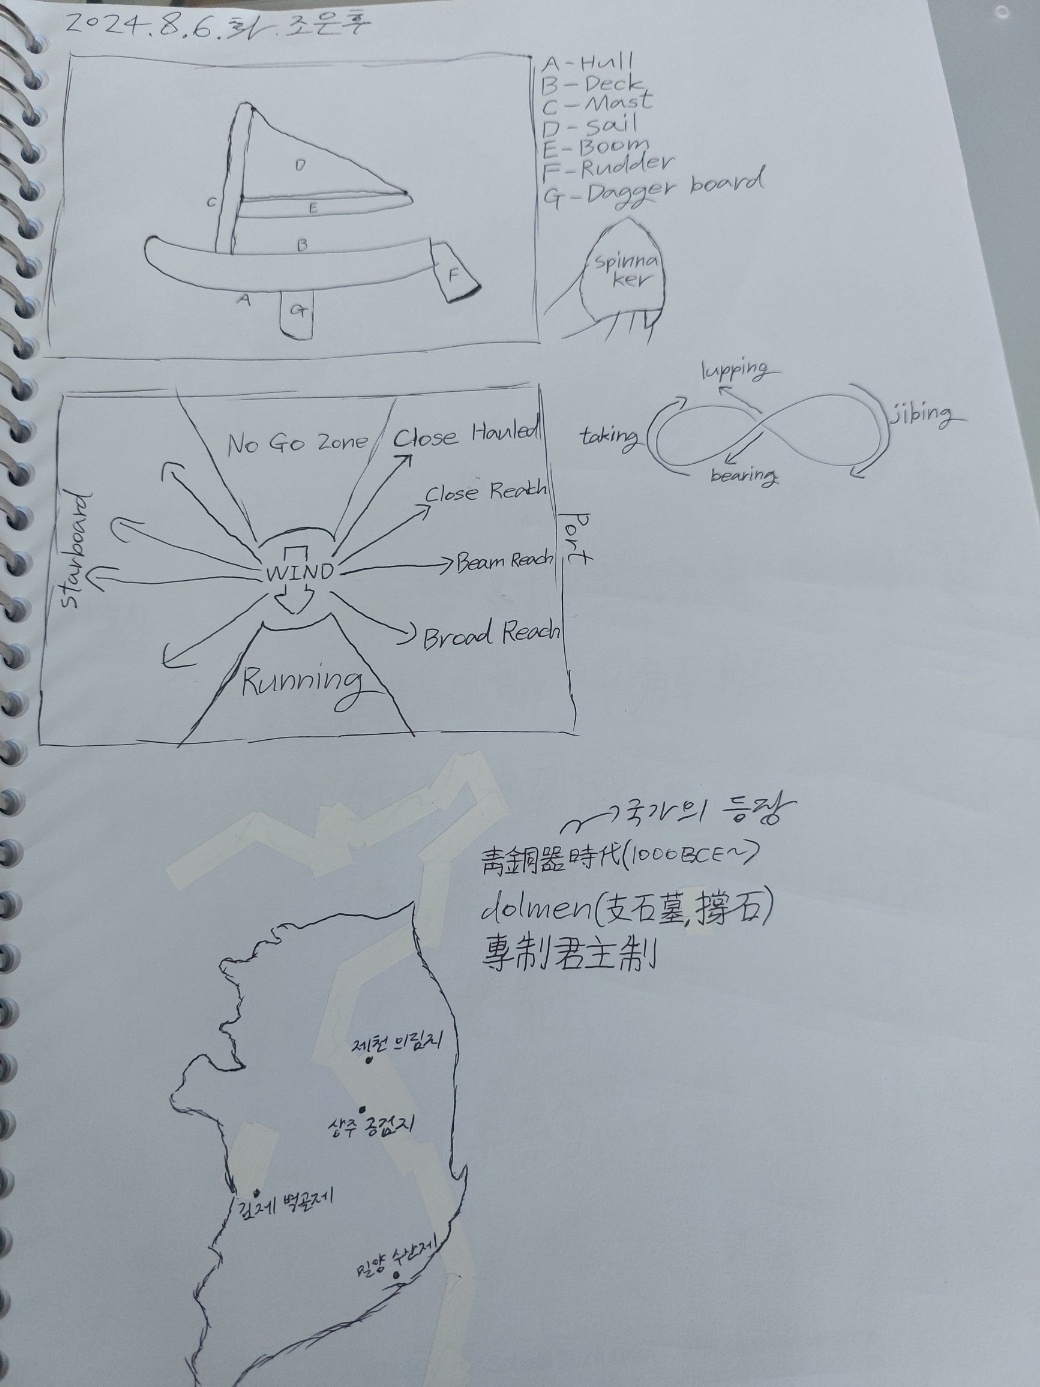 2024.8.6.화.조은후
A-Hull
B-Deck
C-Mast
D-sail
E-Boom
F-Rudder
G-Dagger board
D
C
E
B
F
A
G
spinna
ker
lupping
taking
jibing
bearing
No Go Zone
Close Hauled
Close Reach
starboard
Port
WIND
Beam Reach
Broad Reach
Running
국가의 등장
靑銅器時代(1000BCE~)
dolmen(支石墓,撐石)
專制君主制
제천 의림지
상주 공검지
김제 벽골제
밀양 수산제